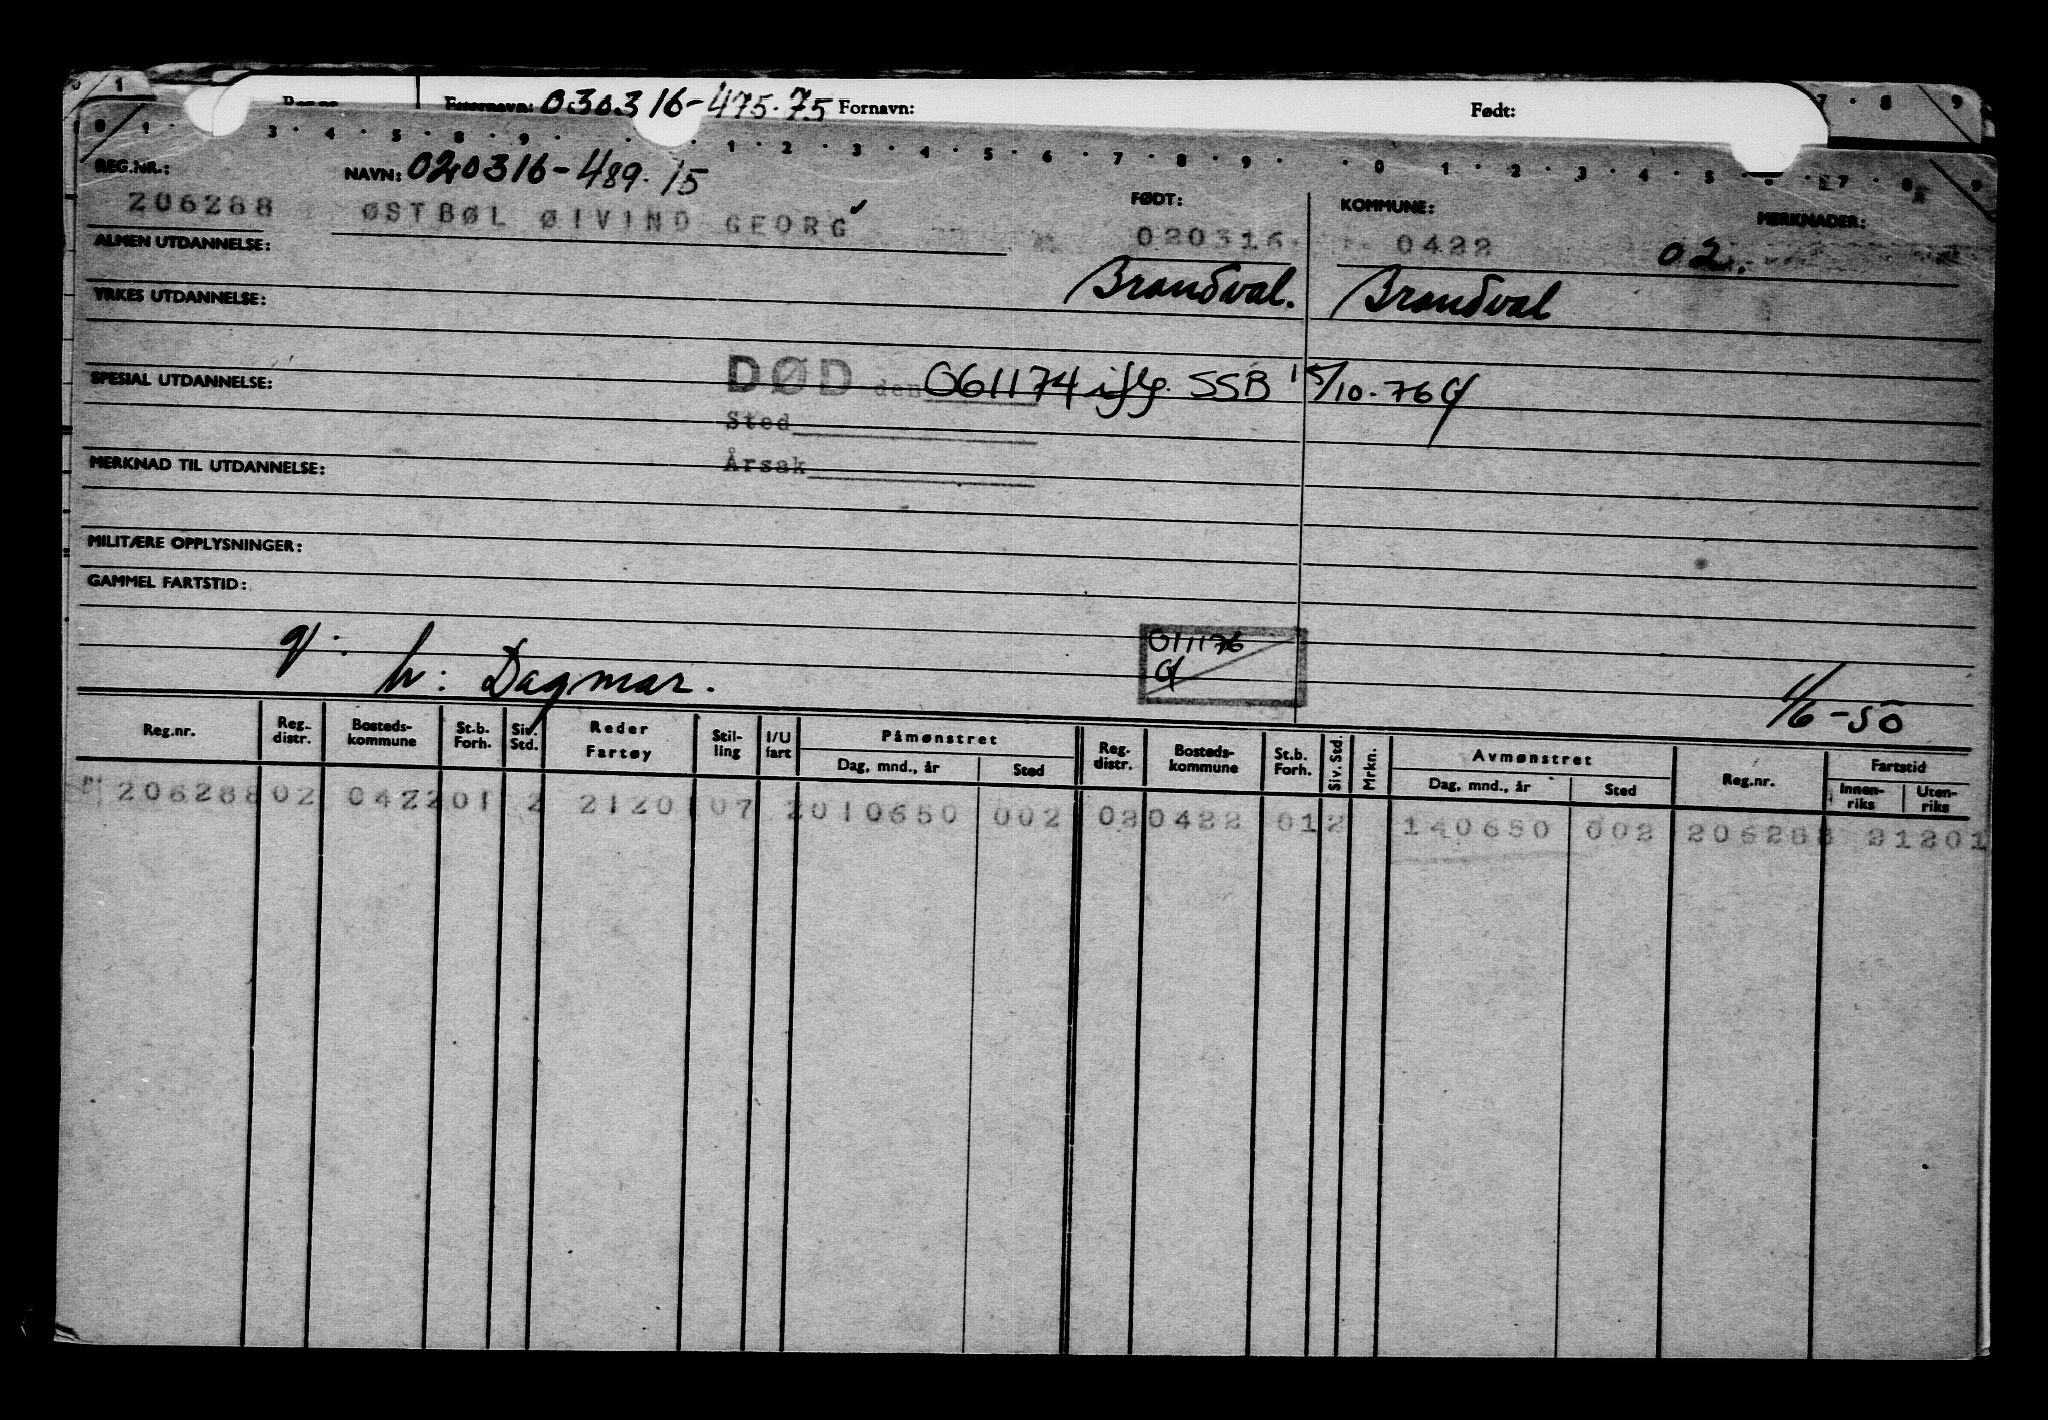 Etternavn: 030316-475.75 Fornavn: Født:
REG.NR.: NAVN: 020316-489.15 FØDT: KOMMUNE: MERKNADER:
206288 ØSTBØL ØIVIND GEORG 020316 0422 02.
ALMEN UTDANNELSE: Brandval. Brandval
YRKES UTDANNELSE:
SPESIAL UTDANNELSE: DØD den 061174 iflg. SSB 15/10-76
Sted
Årsak
MERKNAD TIL UTDANNELSE:
MILITÆRE OPPLYSNINGER:
GAMMEL FARTSTID:
011176
g: h: Dagmar. 1/6-50
Reg.nr. Reg. distr. Bosteds-kommune St.b. Forh. Siv. Std. Reder Fartøy Stil-ling I/U fart Påmønstret Dag, mnd., år Sted Reg. distr. Bosteds-kommune St.b. Forh. Siv. Std. Mrkn. Avmønstret Dag, mnd., år Sted Reg.nr. Fartstid Innen-riks Uten-riks
206288 02 0422 01 2 21201 07 2 010650 002 02 0422 01 2 140650 002 206288 21201